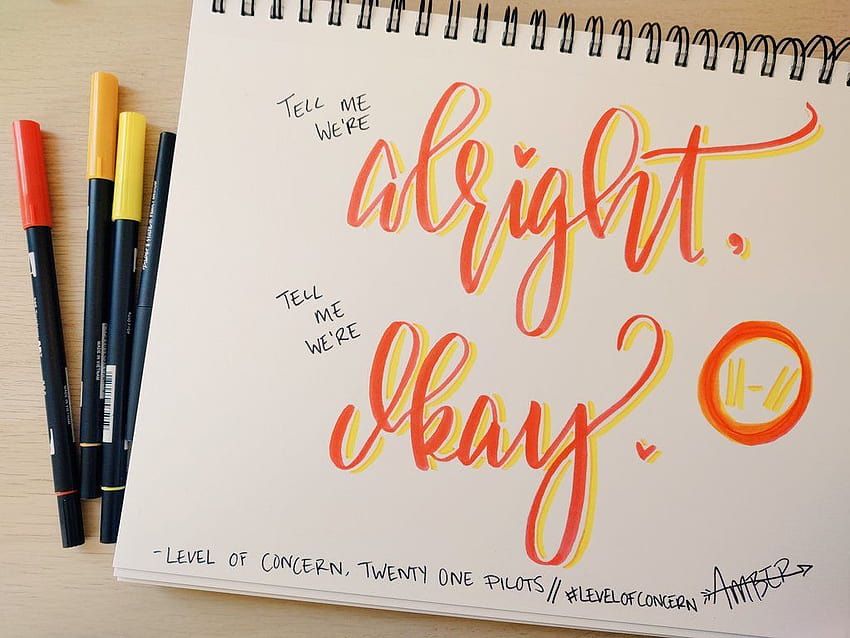 TELL ME
WE'RE
alright,
TELL
ME
WE'RE
Okay?
-LEVEL OF CONCERN, TWENTY ONE PILOTS // #LEVELOFCONCERN AMBER